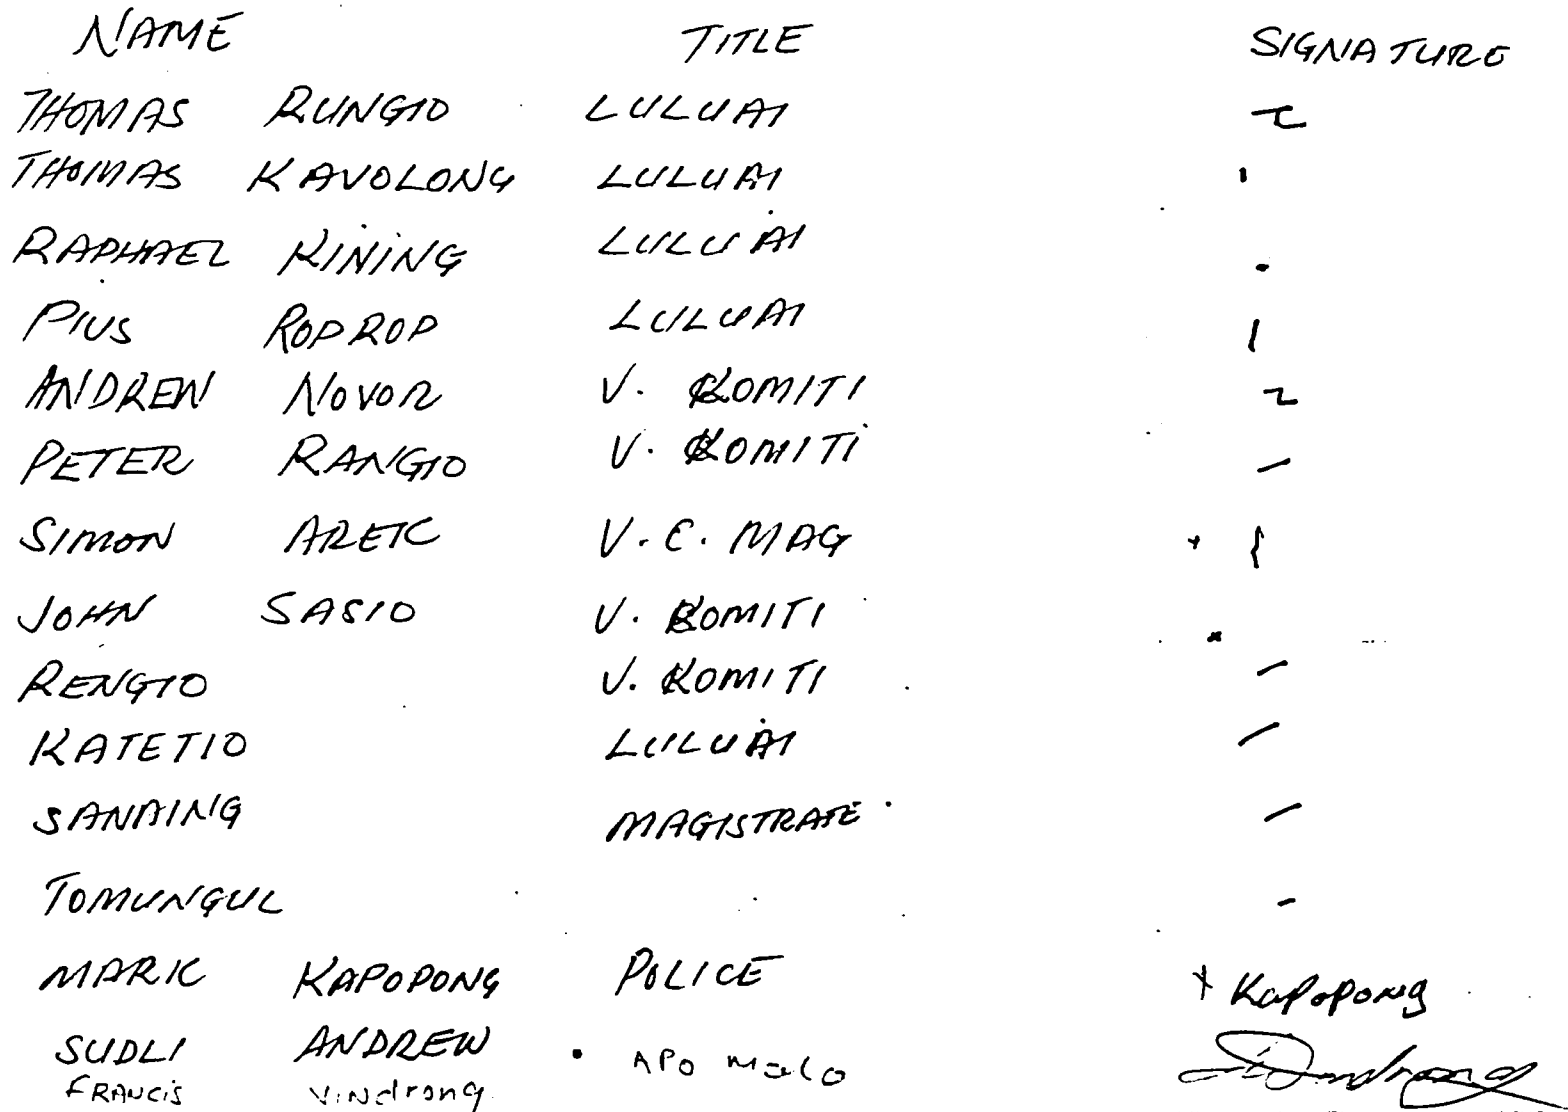 NAME TITLE SIGNATURE
THOMAS RUNGIO LULUAI
THOMAS KAVOLONG LULUAI
RAPHAEL KINING LULUAI
PIUS ROPROP LULUAI
ANDREW NOVOR V. KOMITI
PETER RANGIO V. KOMITI
SIMON AREIC V.C. MAG
JOHN SASIO V. KOMITI
RENGIO V. KOMITI
KATETIO LULUAI
SANAING MAGISTRATE
TOMUNGUL
MARK KAPOPONG POLICE x Kapopong
SUDLI ANDREW APO Malo
FRANCIS Vindrong